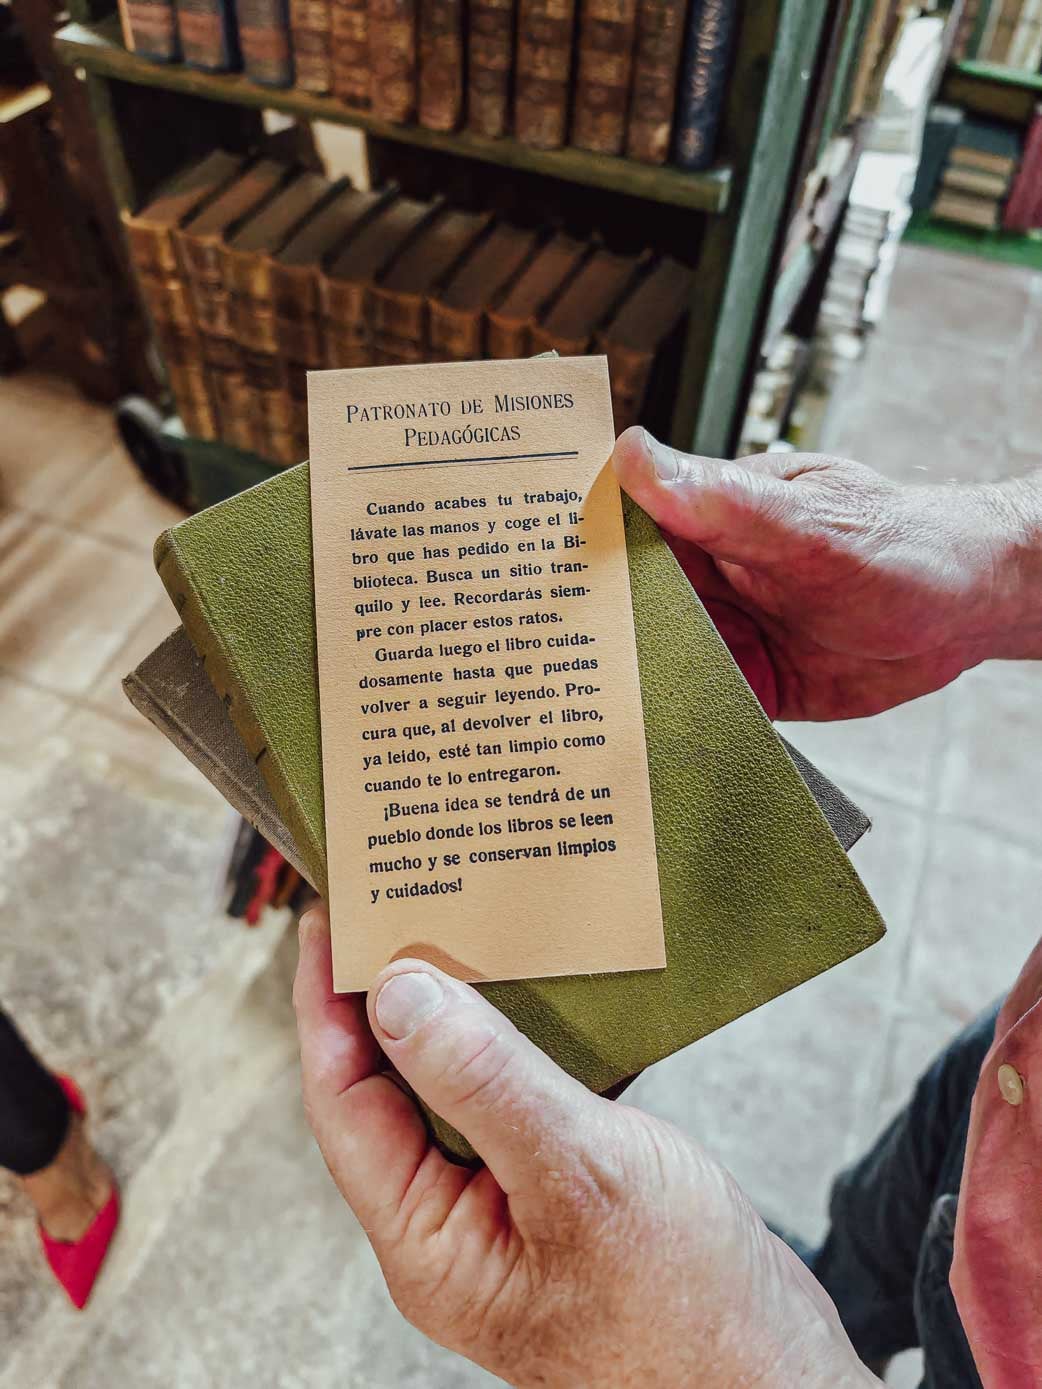 PATRONATO DE MISIONES
PEDAGÓGICAS
Cuando acabes tu trabajo,
lávate las manos y coge el li-
bro que has pedido en la Bi-
blioteca. Busca un sitio tran-
quilo y lee. Recordarás siem-
pre con placer estos ratos.
Guarda luego el libro cuida-
dosamente hasta que puedas
volver a seguir leyendo. Pro-
cura que, al devolver el libro,
ya leído, esté tan limpio como
cuando te lo entregaron.
¡Buena idea se tendrá de un
pueblo donde los libros se leen
mucho y se conservan limpios
y cuidados!